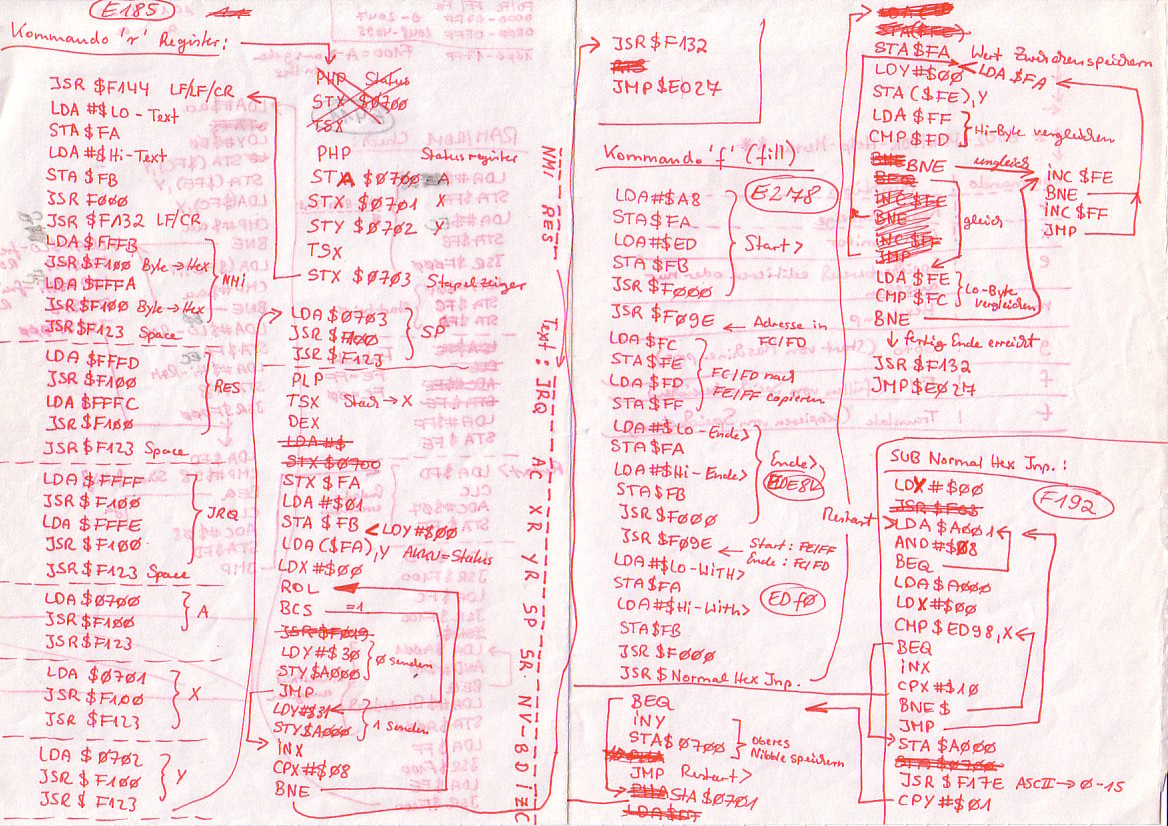 E185
Kommando 'r' Register:
JSR $F144 LF/LF/CR
LDA #$LO-Text
STA $FA
LDA #$Hi-Text
STA $FB
JSR F000
JSR $F132 LF/CR
LDA $FFFB
JSR $F100 Byte→Hex
LDA $FFFA
JSR $F100 Byte→Hex
NHi
JSR $F123 Space
LDA $FFFD
JSR $F100
LDA $FFFC
JSR $F100
RES
JSR $F123 Space
LDA $FFFF
JSR $F100
LDA $FFFE
JSR $F100
JRQ
JSR $F123 Space
LDA $0700
JSR $F100
JSR $F123
A
LDA $0701
JSR $F100
JSR $F123
X
LDA $0702
JSR $F100
JSR $F123
Y
PHP Status
STX $0700
TSX
PHP Statusregister
STA $0700 A
STX $0701 X
STY $0702 Y
TSX
STX $0703 Stapelzeiger
LDA $0703
JSR $F100
JSR $F123
SP
PLP
TSX Stack→X
DEX
LDA #$
STX $0700
STX $FA
LDA #$01
STA $FB LDY #$00
LDA ($FA),Y AKKU=Status
LDX #$00
ROL
BCS =1
JSR $F019
LDY #$30
STY $A000
0 senden
JMP
LDY #$31
STY $A000
1 senden
INX
CPX #$08
BNE
NMI RES Text: JRQ AC XR YR SP SR NV-BDIZC
JSR $F132
RTS
JMP $E027
Kommando 'f' (fill)
E278
LDA #$A8
STA $FA
LDA #$ED
STA $FB
JSR $F000
Start>
JSR $F09E ← Adresse in FC/FD
LDA $FC
STA $FE
LDA $FD
STA $FF
FC/FD nach FE/FF copieren
LDA #$LO-Ende>
STA $FA
LDA #$Hi-Ende>
STA $FB
JSR $F000
Ende>
JSR $F09E ← Start: FE/FF Ende: FC/FD
LDA #$LO-WiTH>
STA $FA
LDA #$Hi-With>
EDF0
STA $FB
JSR $F000
JSR $ Normal Hex Jnp.
BEQ
INY
STA $0700
oberes Nibble speichern
JMP Restart>
PHA STA $0701
STA ($FE)
STA $FA Wert Zwischenspeichern
LDY #$00 LDA $FA
STA ($FE),Y
LDA $FF
CMP $FD
Hi-Byte vergleichen
BNE BNE ungleich
BEQ
INC $FE
BNE
INC $FF
JMP
gleich
INC $FE
BNE
INC $FF
JMP
LDA $FE
CMP $FC
Lo-Byte vergleichen
BNE
↓ fertig Ende erreicht
JSR $F132
JMP $E027
SUB Normal Hex Jnp.:
F192
LDX #$00
Restart
LDA $A001
AND #$08
BEQ
LDA $A000
LDX #$00
CMP $ED98,X
BEQ
INX
CPX #$10
BNE $
JMP
STA $A000
STA $0700
JSR $F17E ASCII→0-15
CPY #$01